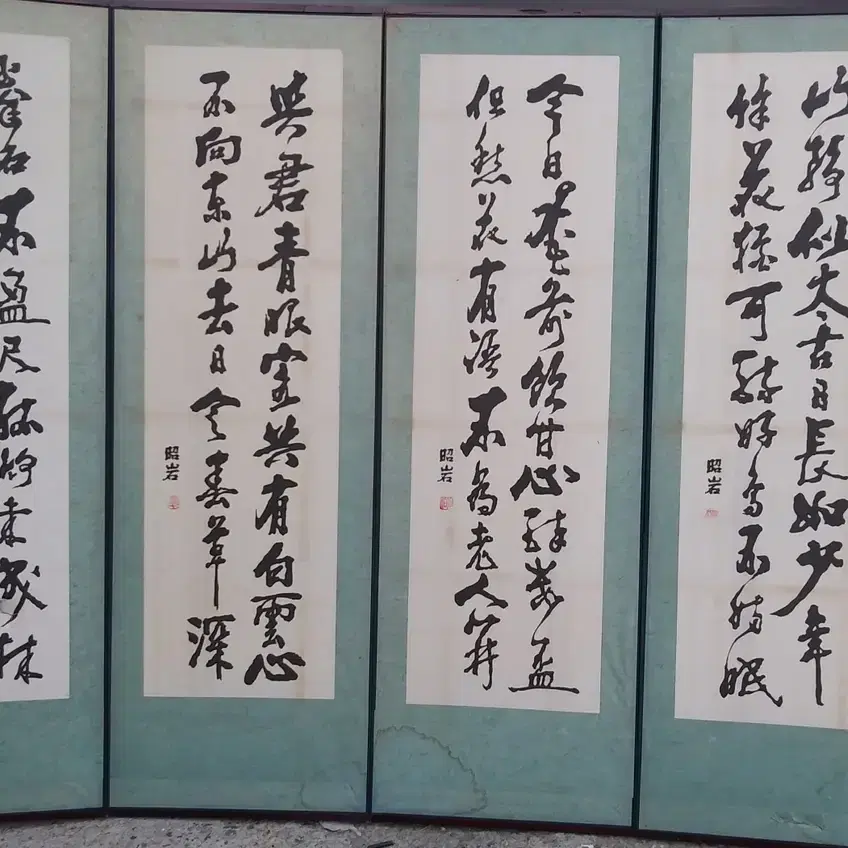 山靜似太古日長如少年
餘花猶可醉好鳥不妨眠
昭岩
今日花前飲甘心醉數盃
但愁花有語不爲老人開
昭岩
與君青眼客共有白雲心
不向東山去日令春草深
昭岩
拳石不盈尺孤竹未成林